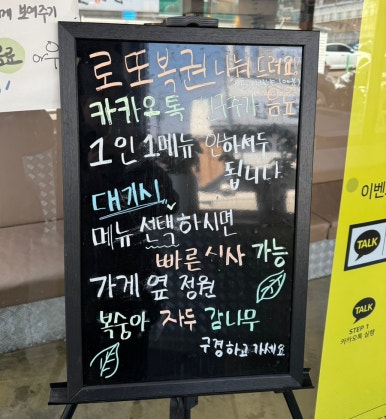 게 보여주기
로또복권 나눠드려요
카카오톡 친구추가 음료
1인 1메뉴 안하셔두
됩니다
대기시
메뉴 선택하시면
빠른 식사 가능
가게 옆 정원
복숭아 자두 감나무
구경하고 가세요
이벤
TALK
TALK
STEP 1
카카오톡 실행